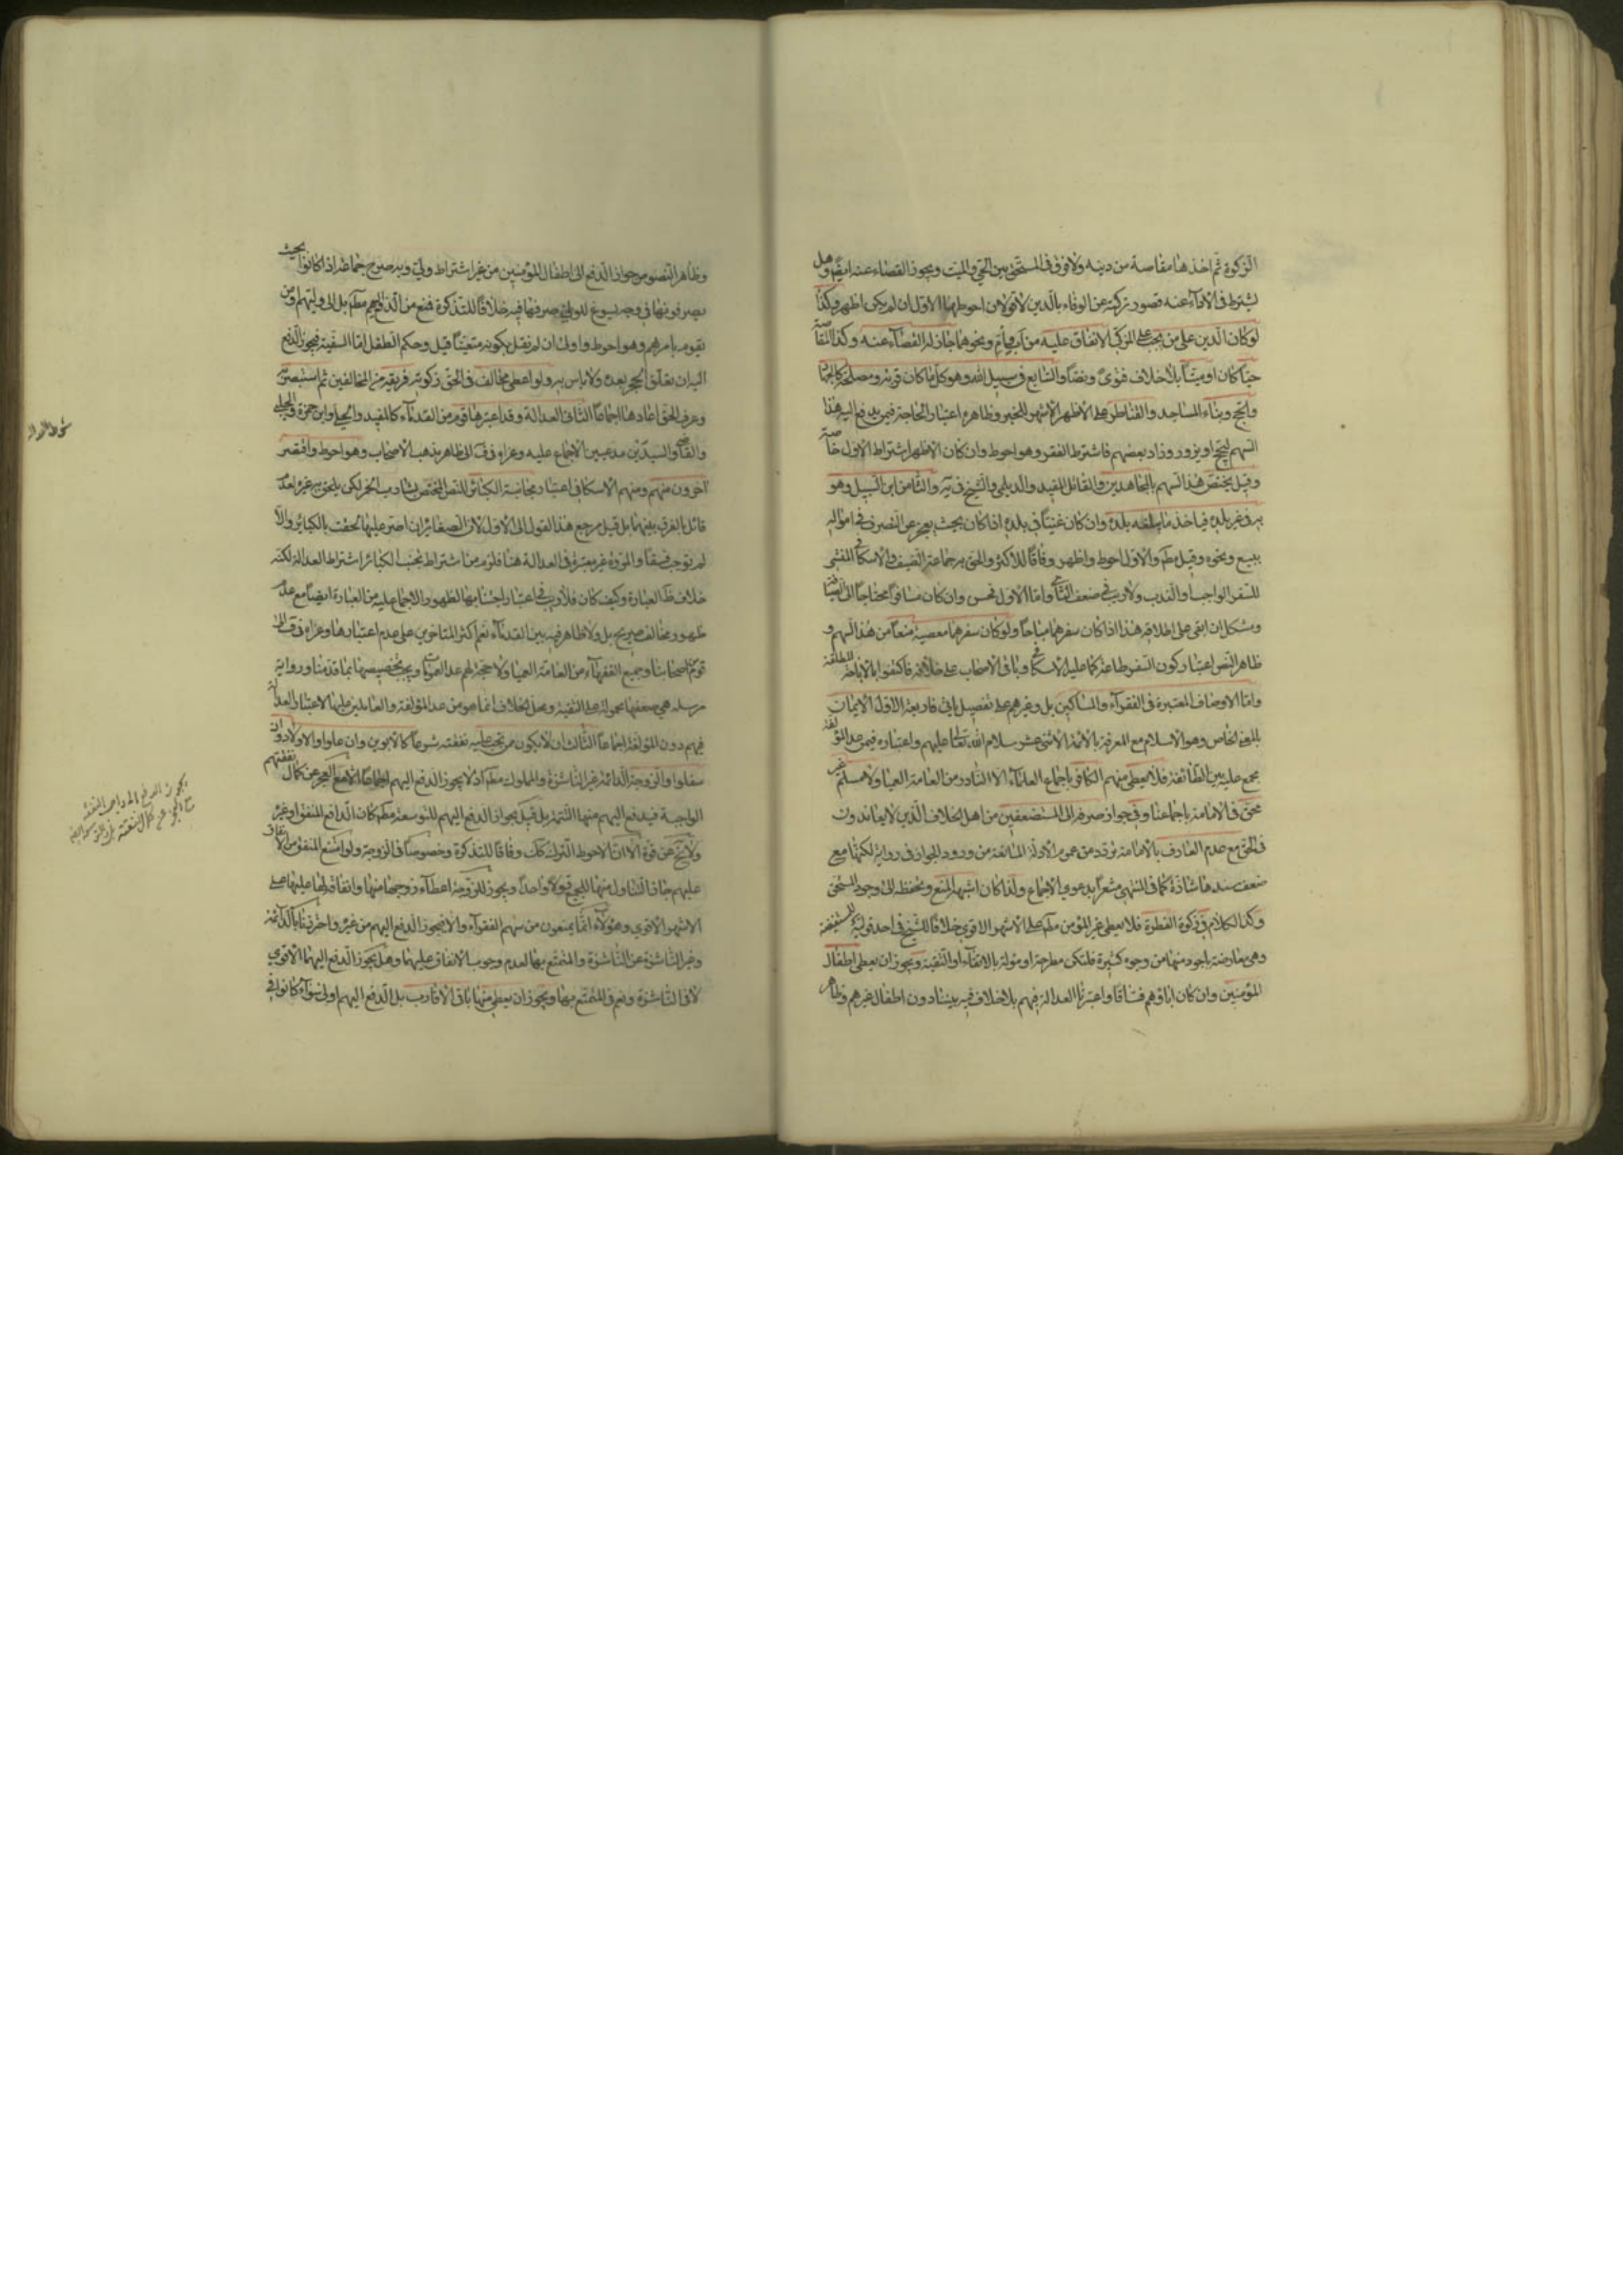 الزكوة ثم اخذها مقاصة من دينه ولا فرق فى المستحق بين الحى والميت ويجوز القضاء عنه ايضا وهل
يشترط فى الاداء عنه قصور تركته عن الوفاء بالدين الاقولان احوطهما الاول ان لم يكن اظهر وكذا
لو كان الدين على من يجب على المزكى الانفاق عليه من اب او ام ونحوهما جاز له القضاء عنه وكذا المقاصة
حيا كان او ميتا بلا خلاف فتوى ونصا والسابع فى سبيل الله وهو كل ما كان قربة ومصلحة كالجهاد
والحج وبناء المساجد والقناطر على الاظهر الاشهر للخبر وظاهره اعتبار الحاجة فيمن يدفع اليه هذا
السهم ليحج او يزور وزاد بعضهم فاشترط الفقر وهو احوط وان كان الاظهر اشتراط الاول خاصة
وقيل يختص هذا السهم بالمجاهدين والقائل المفيد والديلمى والشيخ فى يه والثامن ابن السبيل وهو
به فى غير بلده فياخذ ما يبلغه بلده وان كان غنيا فى بلده اذا كان بحيث يعجز عن التصرف فى امواله
ببيع ونحوه وقيل مطم والاول احوط واظهر وفاقا للاكثر والحق به جماعة الضيف والاسكافى المنشئ
للسفر الواجب او الندب ولا ريب فى ضعف الثانى واما الاول فحسن وان كان مسافرا محتاجا الى الضيافة
ويشكل ان ابقى على اطلاقه هذا اذا كان سفرهما مباحا ولو كان سفرهما معصية منعا من هذا السهم و
ظاهر النص اعتبار كون السفر طاعة كما عليه الاسكافى وباقى الاصحاب على خلافه فاكتفوا بالاباحة المطلقة
واما الاوصاف المعتبرة فى الفقراء والمساكين بل وغيرهم على تفصيل ياتى فاربعة الاول الايمان
بالمعنى الخاص وهو الاسلام مع المعرفة بالائمة الاثنى عشر سلام الله تعالى عليهم واعتباره فيمن عدا المؤلفة
مجمع عليه بين الطائفة فلا يعطى منهم الكافر باجماع العلماء الا النادر من العامة العمياء ولا مسلم غير
محق فى الامامة باجماعنا وفى جواز صرفه الى المستضعفين من اهل الخلاف الذين لا يعاندون
فى الحق مع عدم العارف بالامامة تردد من عموم الادلة المانعة من ورود الجواز فى رواية لكنها مع
ضعف سندها شاذة كما فى المنتهى مشعرا بدعوى الاجماع ولذا كان اشبهه المنع وتحفظ الى وجود المستحق
وكذا الكلام فى زكوة الفطرة فلا يعطى غير المؤمن مطم على الاشهر الاقوى خلافا للشيخ فى احد قوليه للمستفيضة
وهى معارضة باجود منها من وجوه كثيرة فلتكن مطرحة او مولة بالاتقاء او التقية ويجوز ان يعطى اطفال
المؤمنين وان كان اباؤهم فساقا واعتبرنا العدالة فيهم بلا خلاف فيه بيننا دون اطفال غيرهم وظاهر
وظاهر النصوص جواز الدفع الى اطفال المؤمنين من غير اشتراط ولى وبه صرح جماعة اذا كانوا بحيث
يصرفونها فى وجه يسوغ للولى صرفها فيه خلافا للتذكرة فمنع من الدفع اليهم مطم بل الى وليهم او من
يقوم بامرهم وهو احوط واولى ان لم نقل بكونه متعينا قيل وحكم الطفل اما السفيه فيجوز الدفع
اليه ان تعلق الحجر بعده ولا باس به ولو اعطى مخالف فى الحق زكوته فريقه من المخالفين ثم استبصر
وعرف الحق اعادها اجماعا الثانى العدالة وقد اعتبرها قوم من القدماء كالمفيد والحلى وابن حمزة والحلبى
والقاضى والسيدين مدعيين الاجماع عليه وعزاه فى ف الى ظاهر مذهب الاصحاب وهو احوط واقتصر
آخرون منهم ومنهم الاسكافى اعتبار مجانبة الكبائر للنص المختص بشارب الخمر لكن يلحق به غيره لعدم
قائل بالفرق بينهما بل قيل مرجع هذا القول الى الاول لان الصغائر ان اصر عليها لحقت بالكبائر والا
لم توجب فسقا والمروة غير معتبرة فى العدالة هنا فلزم من اشتراط تجنب الكبائر اشتراط العدالة لكنه
خلاف ظ العبارة وكيف كان فلا ريب فى اعتبار اجتنابها لظهور الاجماع عليه من العبارة ايضا مع عدم
ظهور مخالف صريح بل ولا ظاهر فيه بين القدماء نعم اكثر المتاخرين على عدم اعتبارها وعزاه فى ف الى
قوم من اصحابنا وجميع الفقهاء من العامة العمياء ولا حجة لهم عدا العمومات ويجب تخصيصها بما قدمنا ورواية
مرسلة هى ضعفها محمولة على التقية ومحل الخلاف انما هو من عدا المؤلفة والعاملين عليها لاعتبار العدالة
فيهم دون المؤلفة اجماعا الثالث ان لا يكون ممن تجب عليه نفقته شرعا كالابوين وان علوا والاولاد وان
سفلوا والزوجة الدائمة غير الناشزة والمملوك مطم اذ لا يجوز الدفع اليهم اجماعا الا مع العجز عن كمال نفقتهم
الواجبة فيدفع اليهم منها التتمة بل قيل بجواز الدفع اليهم للتوسعة مطم كان الدافع المنفق او غيره
ولا يخ عن قوة الا ان الاحوط الترك كك وفاقا للتذكرة وخصوصا فى الزوجة ولو امتنع المنفق من الانفاق
عليهم جاز التناول منها للجميع قولا واحدا ويجوز للزوجة اعطاء زوجها منها وانفاقه لها عليها على
الاشهر الاقوى وهؤلاء انما يمنعون من سهم الفقراء والا فيجوز الدفع اليهم من غيره واحترزنا بالدائمة
وغير الناشزة عن الناشزة والمتمتع بها لعدم وجوب الانفاق عليهما وهل يجوز الدفع اليهما الاقوى
لا فى الناشزة ونعم فى المتمتع بها ويجوز ان يعطى منها باقى الاقارب بل الدفع اليهم اولى سواء كانوا فى
شرط العدالة
يجوز الدفع الى واجب النفقة
مع العجز عن كمال النفقة